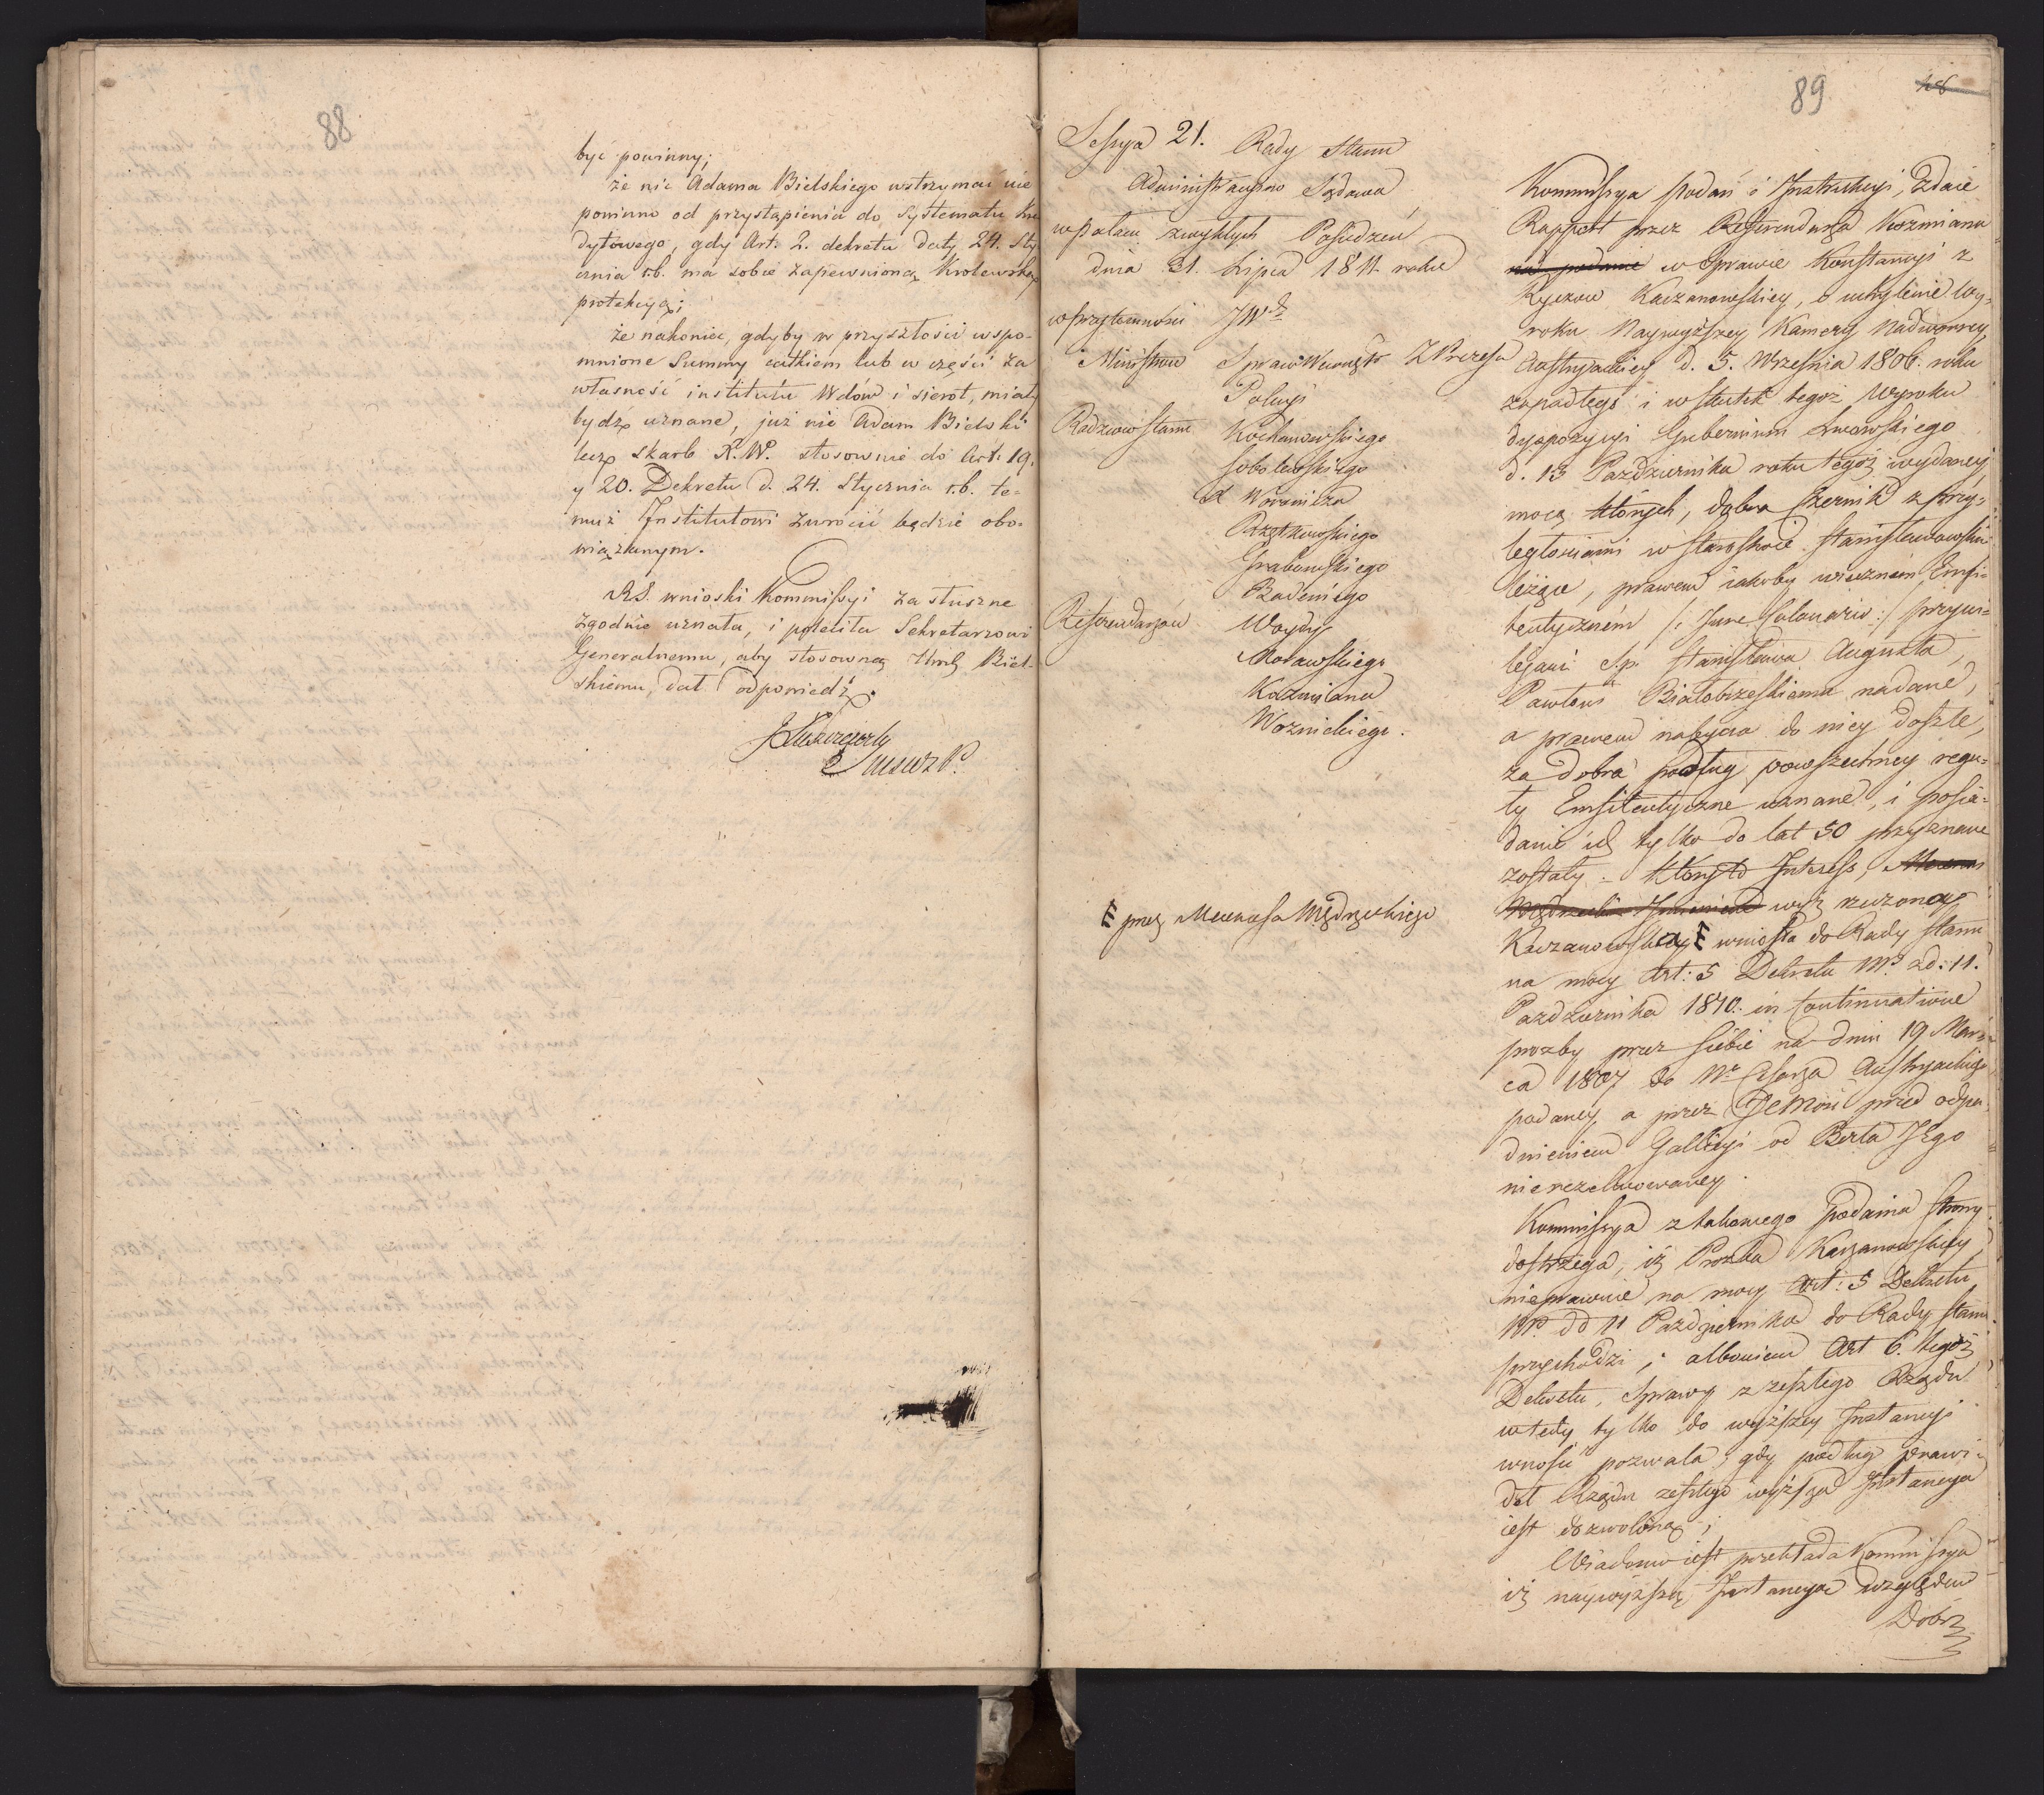 88
być powinny;
że nic Adama Bielskiego wstrzymać nie
powinno od przystąpienia do Systematu kre
dytowego, gdy Art. 2. dekretu daty 24. Sty
cznia r.b. ma sobie zapewnioną Krolewską
protekcyą;
że nakoniec, gdyby w przyszłości wspo-
mnione Summy całkiem lub w części za
własność institutu Wdów i sierot, miały
bydź uznane, już nie Adam Bielski
lecz skarb X.W. stosownie do Art. 19.
y 20. Dekretu d. 24. Stycznia r.b. te-
muż Institutowi zwrócić będzie obo-
wiązanym.
RS. wnioski Kommissyi za słuszne
zgodnie uznała, i poleciła Sekretarzowi
Generalnemu, aby stosowną Hrab Biel-
skiemu, dał odpowiedź.
89
Sessya 21. Rady Stanu
Administracyjno Sądowa
w pałacu zwykłych Posiedzeń
dnia 31. Lipca 1811. roku
w przytomności JW
Ministrów Spraw Wewnętr. Z Prezesa
Policyi
Radzców Stanu Kochanowskiego
Sobolewskiego
X Woronicza
Grabowskiego
Badeniego
Referendarzów Woydy
Morawskiego
Kozmiana
Woznickiego.
E przez Mecenasa Mędrzeckiego
Kommissya podań i Instrukcyi, zdaie
Rapport przez Referendarza Kozmiana
na podanie w sprawie Konstancyi z
Kaczanowskiey, o uchylenie Wy-
roku Naywyższey Kamery Nadworney
Austryackiey d. 5. Września 1806. roku
zapadłego i w skutek tegoż Wyroku
dyspozycyi Gubernium Lwowskiego
d. 13 Pazdziernika roku tegoż wydaney
mocą których, dobra Czernik z przy-
ległościami w Starostwie Stanisławowskim
leżące, prawem iakoby wiecznem Emfi-
teutycznem /: Jure Colonario :/ przywi-
lejami S.p. Stanisława Augusta,
Pawłowi Białobrzeskiemu nadane,
a prawem nabycia do niey doszłe,
za dobra podług powszechney regu-
ły Emfiteutyczne uznane, i posia-
danie ich tylko do lat 50 przyznane
zostały - któryto Interess,
wyż rzeczona
Kaczanowska E wniosła do Rady Stanu
na mocy Art: 5 Dekretu NP. z d. 11.
Pazdziernika 1810. in Continuatione
prozby przez siebie na dniu 19 Mar-
ca 1807 do Nº Cesarza Austryackiego
podaney, a przez JEMość przed odpa-
dnieniem Gallicyi od Berła JEgo
nierezolwowaney.
Kommissya z takowego Podania Strony
dostrzega, iż Prozba Kaczanowskiey,
nieprawnie na mocy Art: 5 Dekretu
NP. dd 11 Pazdziernika do Rady Stanu
przychodzi; albowiem Art 6. tegoż
Dekretu, Sprawy z zeszłego Rządu
wtedy tylko do wyższey Instancyi
wnosić pozwala, gdy podług prawi-
deł Rządu zeszłego wyższa Instancya
iest dozwoloną;
Wiadomo iest przekłada Kommissya
iż naywyższą Instancyą względem
Dóbr